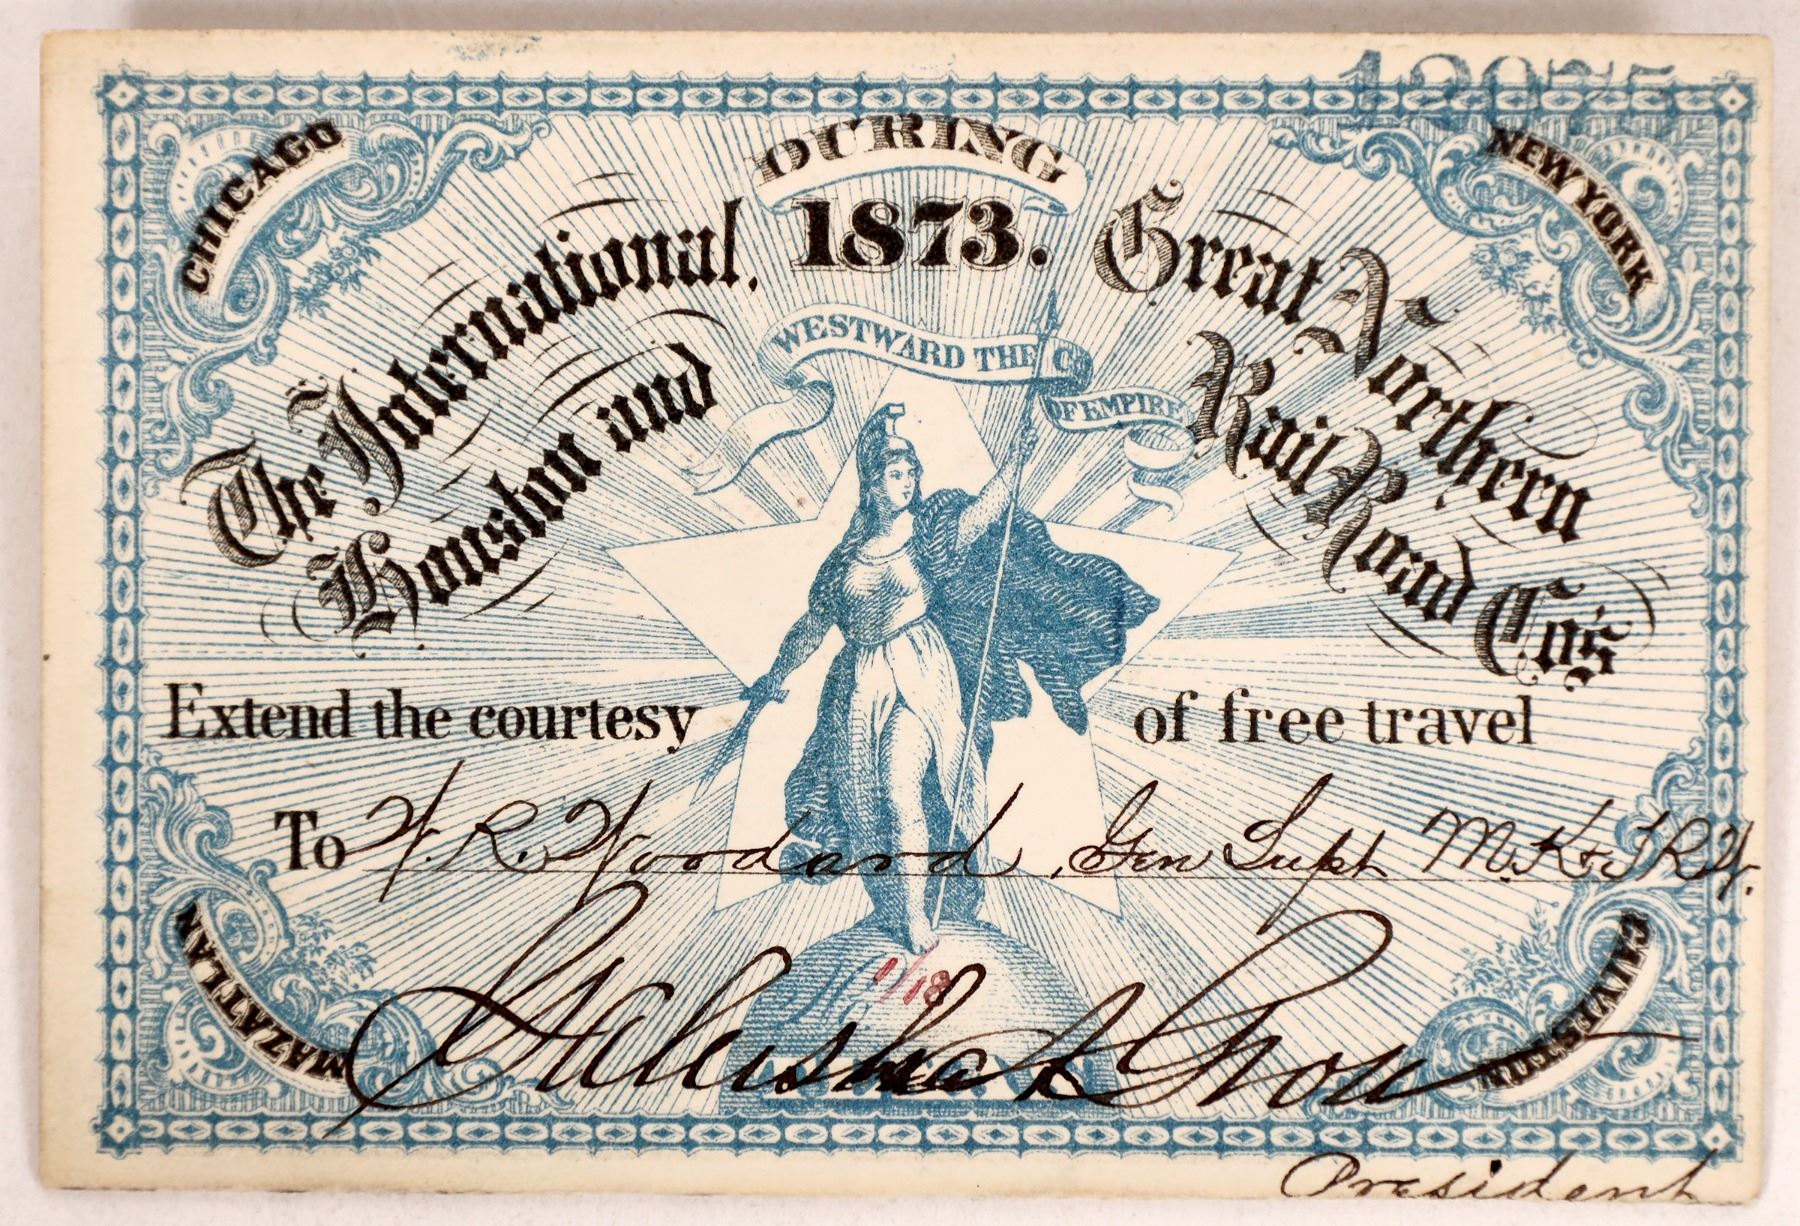 12975
CHICAGO
NEW YORK
DURING
1873.
The International,
Houston and
Great Northern
Rail Road Co's
WESTWARD THE C
OF EMPIRE
Extend the courtesy of free travel
To W. R. Woodard, Gen Supt M. K & T RY.
1/18
Galusha A Grow
MAZATLAN
GALVESTON
President